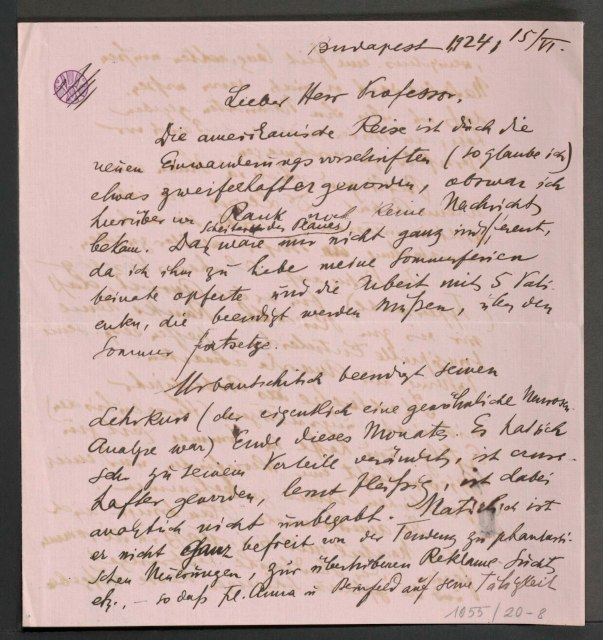 Budapest 1924, 15/VI.
Lieber Herr Professor,
Die amerikanische Reise ist durch die
neuen Einwanderungsvorschriften (so glaube ich)
etwas zweifelhafter geworden, obzwar ich
hierüber von Rank noch keine Nachricht
bekam. Das Scheitern des Planes wäre mir nicht ganz indifferent,
da ich ihm zu Liebe meine Sommerferien
beinahe opferte und die Arbeit mit 5 Pati-
enten, die beendigt werden müßen, über den
Sommer fortsetze.
Urbantschitsch beendigt seinen
Lehrkurs (der eigentlich eine gewöhnliche Neurosen-
Analyse war) Ende dieses Monats. Er hat sich
sehr zu seinem Vorteile verändert, ist ernst-
hafter geworden, lernt fleißig, ist dabei
analytisch nicht unbegabt. Natürlich ist
er nicht ganz befreit von der Tendenz zu phantasti-
schen Neuerungen, zur übertriebenen Reklame-Sucht,
etz., – so daß Frl. Anna u Bernfeld auf seine Tätigkeit
1055/20-8